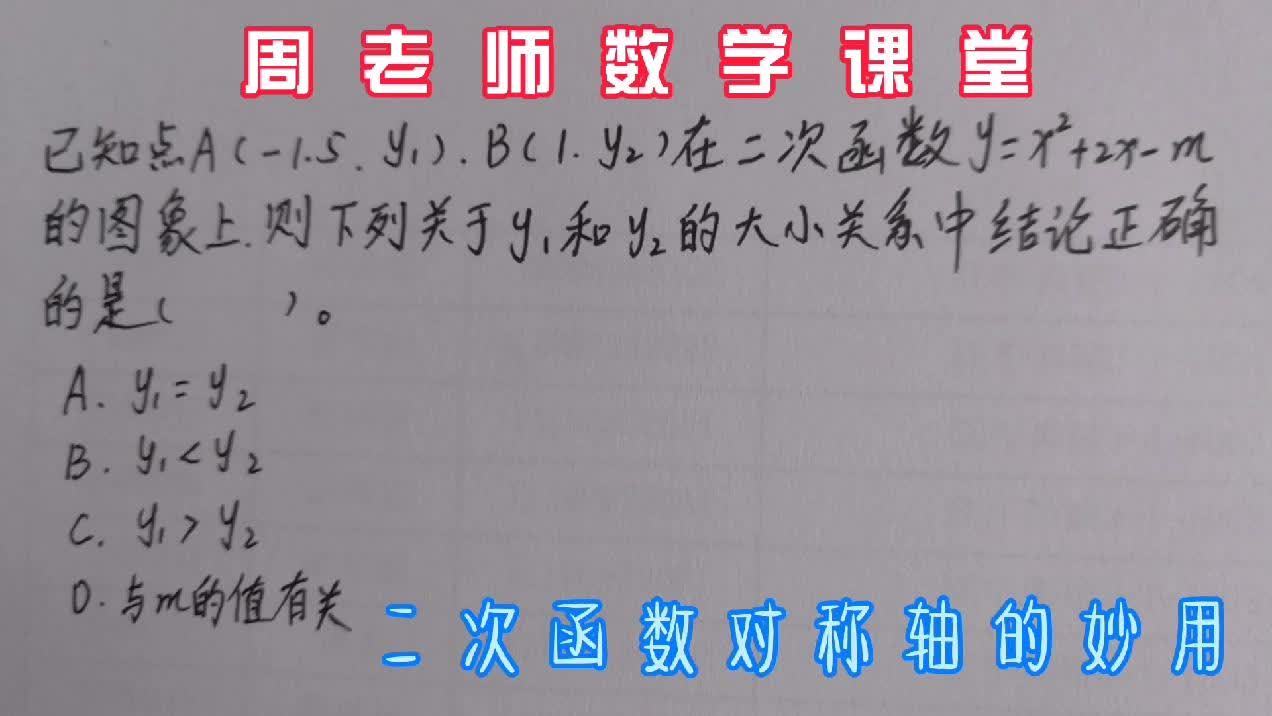 周老师数学课堂
已知点A(-1.5.y₁).B(1.y₂)在二次函数y=x²+2x-m
的图象上.则下列关于y₁和y₂的大小关系中结论正确
的是(　　)。
A. y₁=y₂
B. y₁<y₂
C. y₁>y₂
D. 与m的值有关
二次函数对称轴的妙用